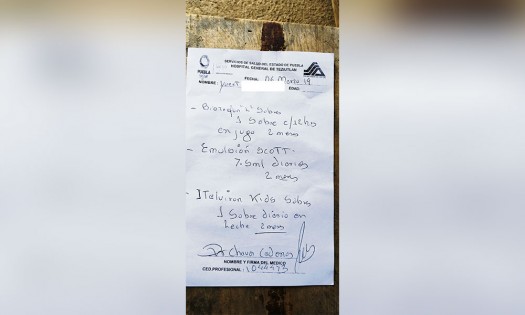 SERVICIOS DE SALUD DEL ESTADO DE PUEBLA
HOSPITAL GENERAL DE TEZIUTLAN
PUEBLA
NOMBRE: FECHA: 06 Marzo 19
EDAD:
- Sobres
1 Sobre c/12hs
en jugo 2 meses
- Emulsión SCOTT.
7.5ml diarios
2 meses
- Kids Sobres
1 Sobre diario en
Leche 2 meses
Dr Chavez Cadenas
NOMBRE Y FIRMA DEL MEDICO
CED.PROFESIONAL: